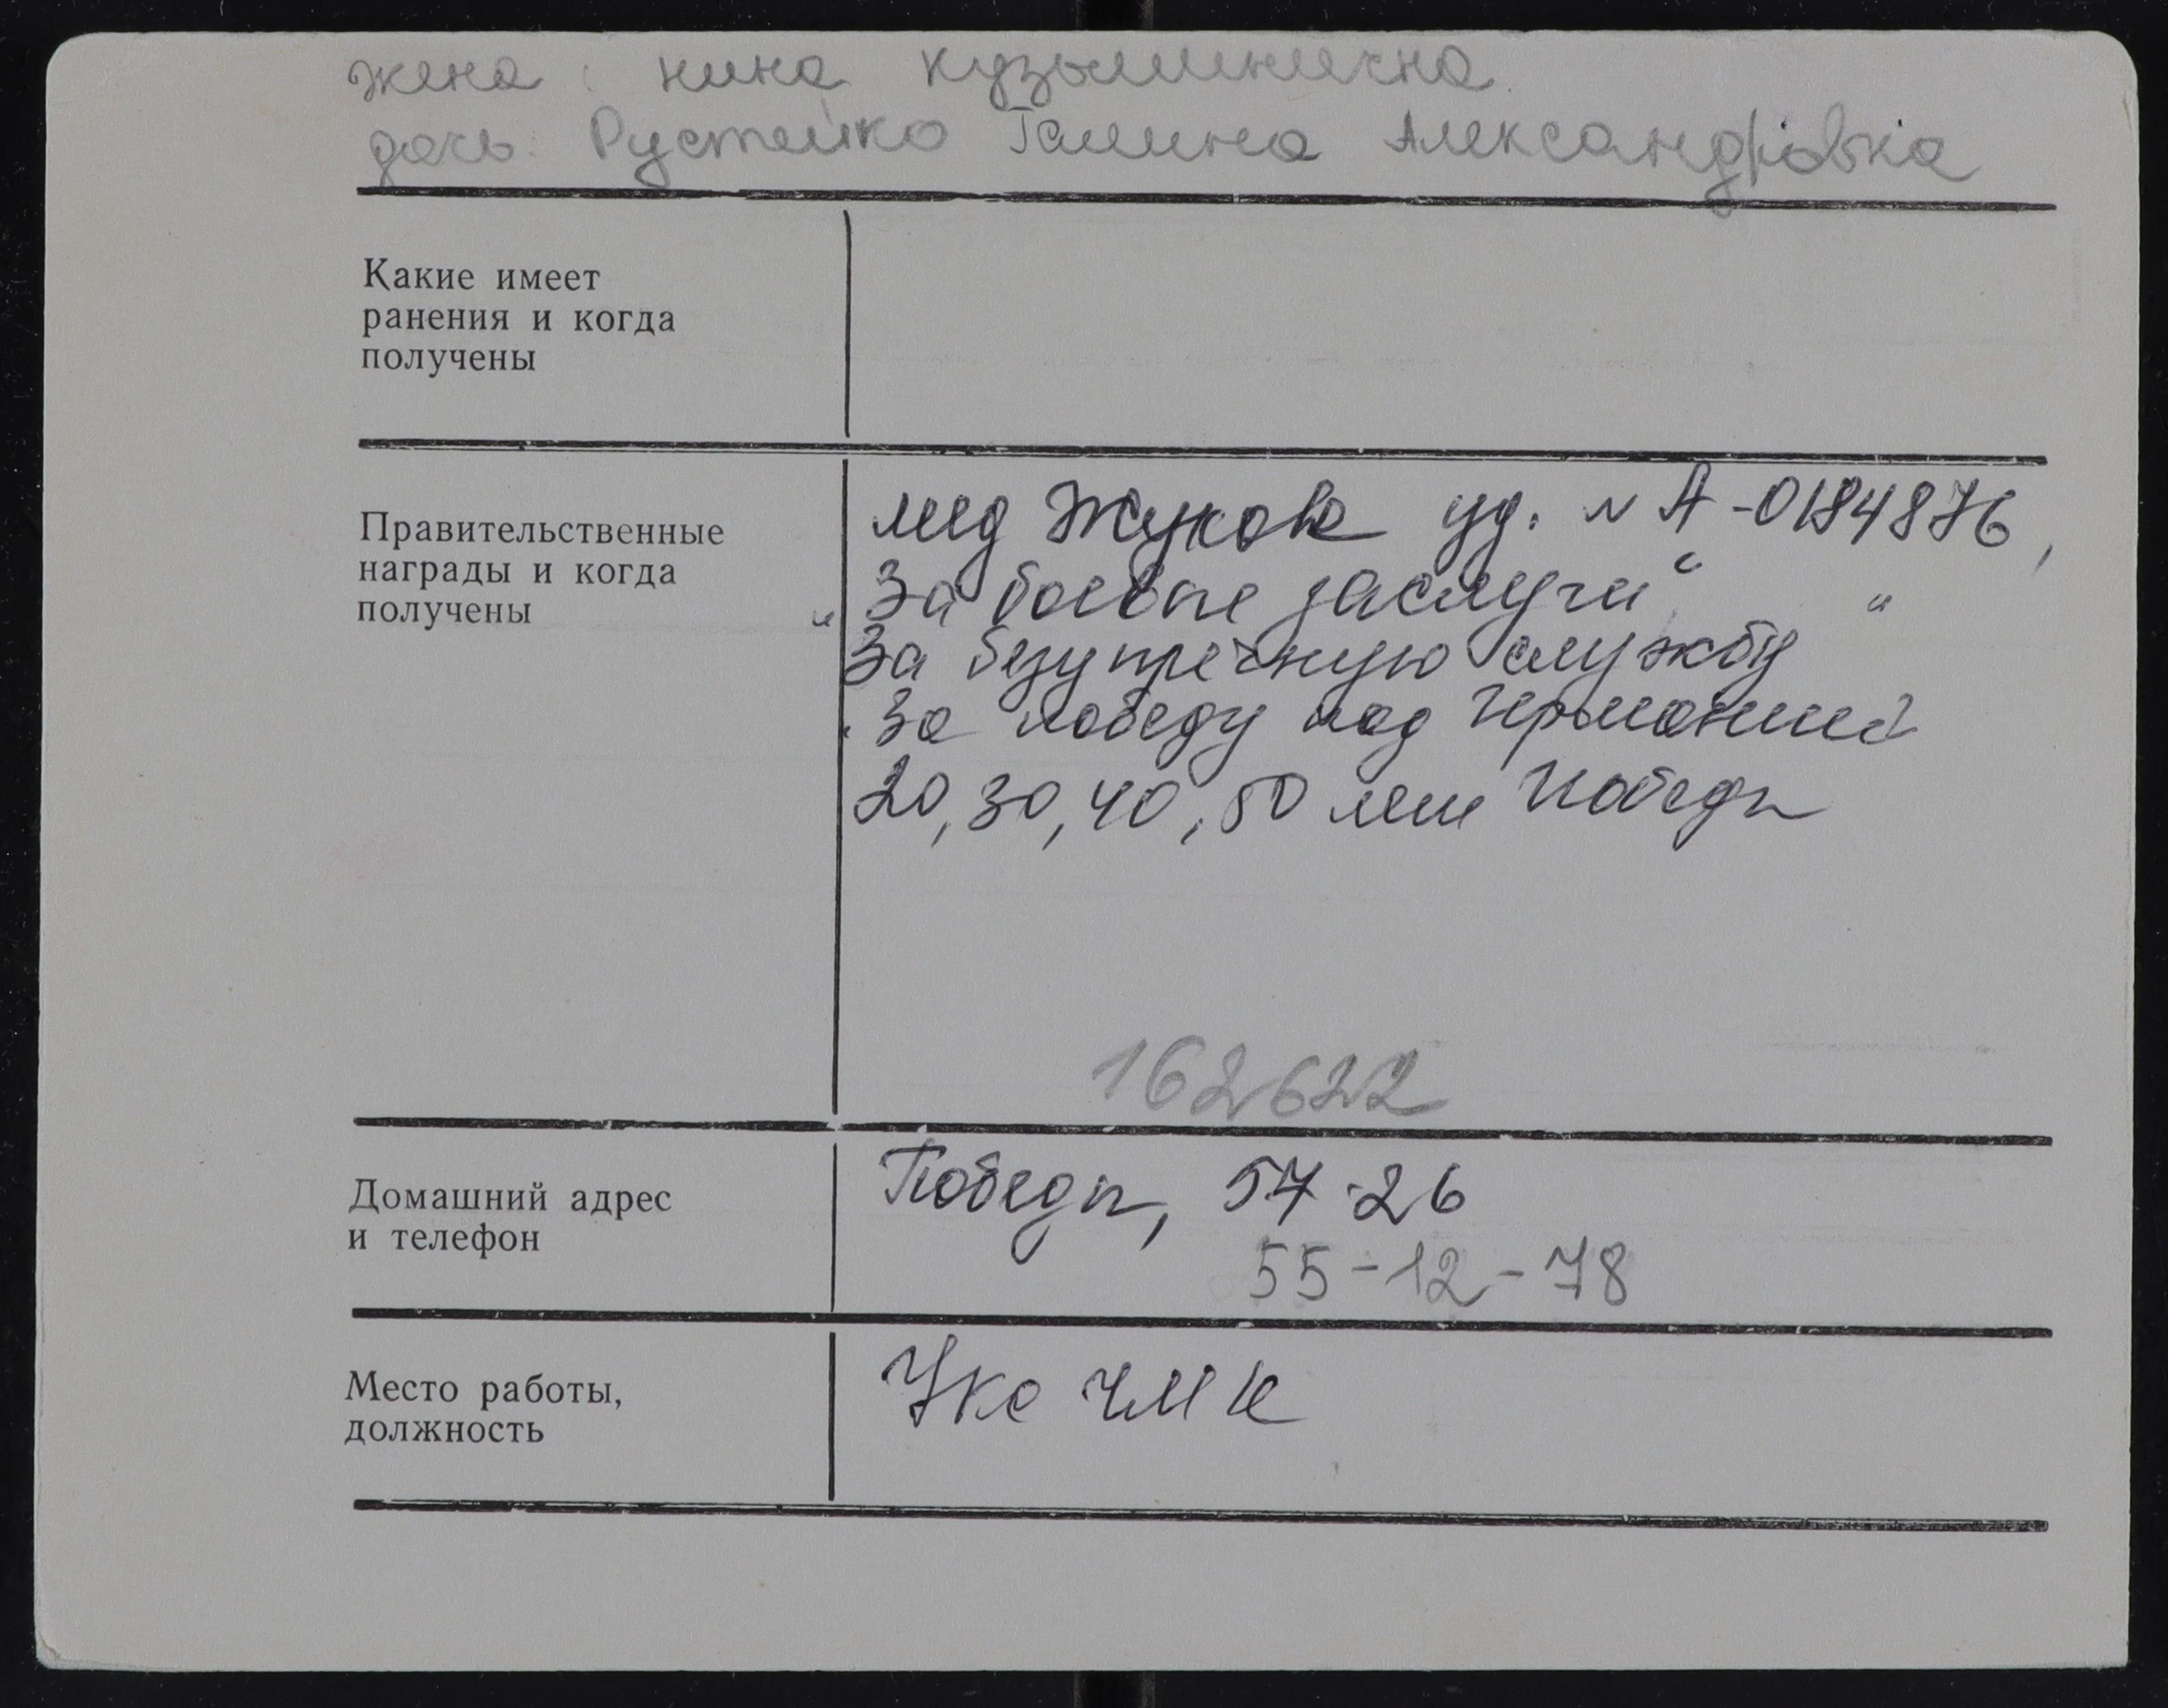 жена: нина кузьминична
дочь: Рустейко Галина Александровна
Какие имеет
ранения и когда
получены
Правительственные
награды и когда
получены
мед Жукова уд. N А-0184876,
"За боевые заслуги" "
За безупречную службу
"За победу над Германией
20, 30, 40, 50 лет Победы
162622
Домашний адрес
и телефон
Победы, 57-26
55-12-78
Место работы,
должность
УКС ЧМК